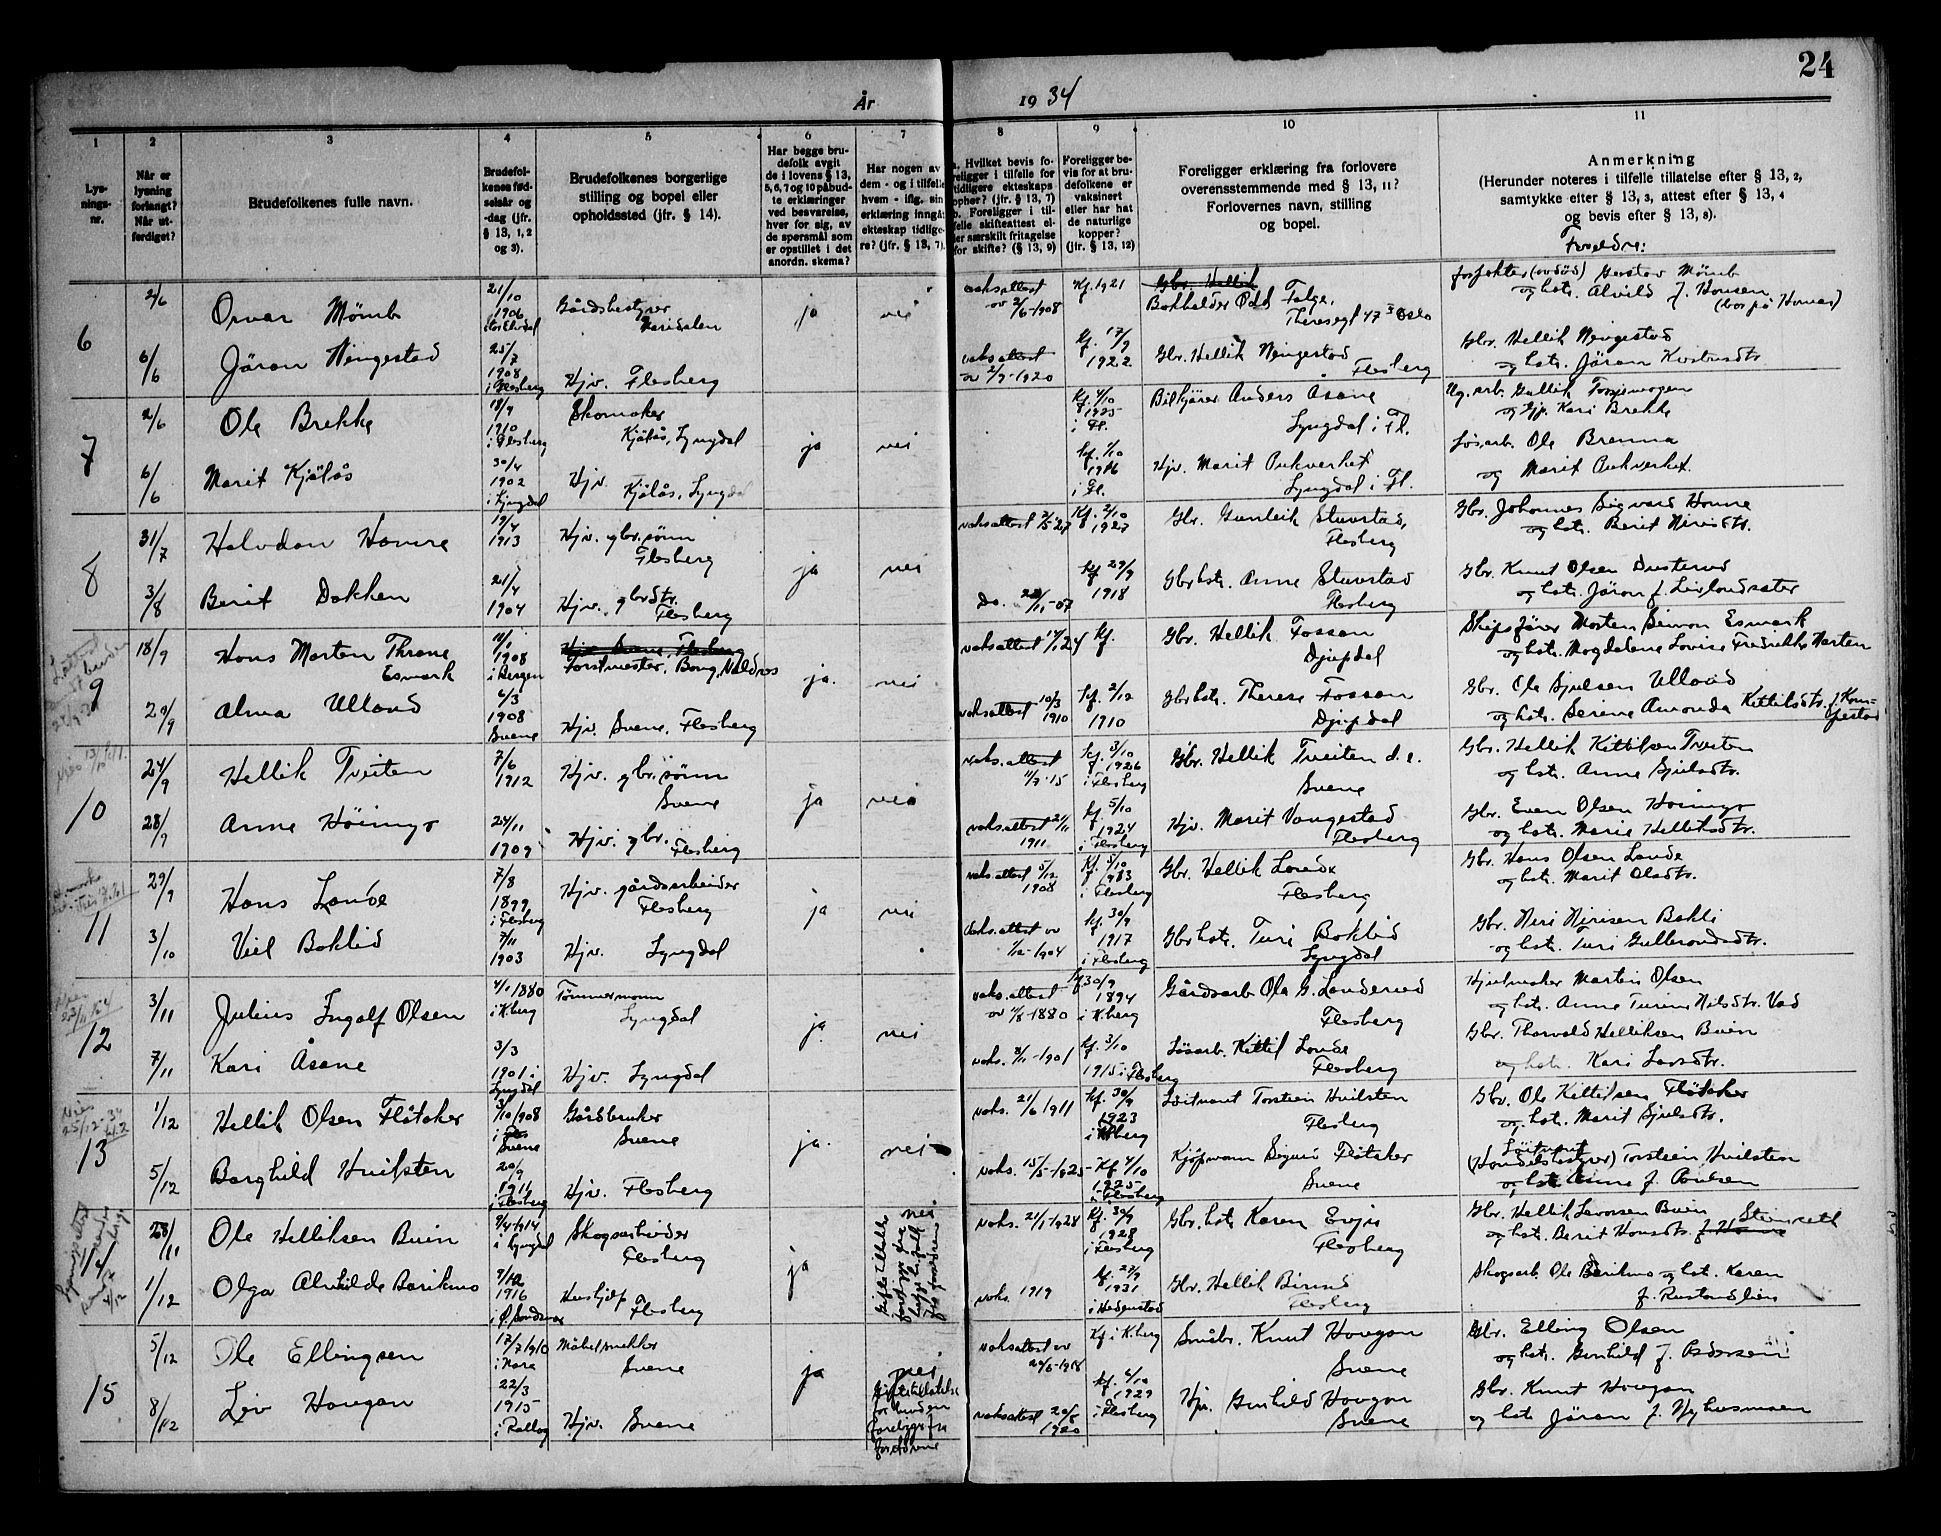 24
År 1934
1 2 3 4 5 6 7 8 9 10 11
Lys-
nings-
nr.
Når er
lysning
forlangt?
Når ut-
ferdiget?
Brudefolkenes fulle navn.
Brudefol-
kenes fød-
selsår og
-dag (jfr.
§ 13, 1, 2
og 3).
Brudefolkenes borgerlige
stilling og bopel eller
opholdssted (jfr. § 14).
Har begge bru-
defolk avgit
de i lovens § 13,
5, 6, 7 og 10 påbud-
te erklæringer
ved besvarelse,
hver for sig, av
de spørsmål som
er opstillet i det
anordn. skema?
Har nogen av
dem - og i tilfelle
hvem - iflg. sin
erklæring inngåt
ekteskap tidlige-
re? (jfr. § 13, 7).
a. Hvilket bevis fo-
religger i tilfelle for
tidligere ekteskaps
opphør? (jfr. § 13, 7)
b. Foreligger i til-
felle skifteattest el-
ler særskilt fritagelse
for skifte? (§ 13, 9)
Foreligger be-
vis for at bru-
defolkene er
vaksinert
eller har hat
de naturlige
kopper?
(jfr. § 13, 12)
Foreligger erklæring fra forlovere
overensstemmende med § 13, 11?
Forlovernes navn, stilling
og bopel.
Anmerkning
(Herunder noteres i tilfelle tillatelse efter § 13, 2,
samtykke efter § 13, 3, attest efter § 13, 4
og bevis efter § 13, 8).
Foreldre:
6
2/6 Omar Mömb 21/10 1906 Gårdsbestyrer Maridalen ja nei
vaksattest av 2/6-1908 Kf. 1921 Gbr. Hellik Bokholder Odd Falge, Theresegt 47 3 Oslo
og hst. Alvild f. Hansen
6/6 Jöran Nengestad 25/7 1908 i Flesberg Hjv. Flesberg
vaksattest av 2/9-1920 Kf. 17/9 1922 Gbr. Hellik Nengestad Flesberg
Gbr. Hellik Nengestad
og hst. Jöran
7
2/6 Ole Brekke 18/9 1910 i Flesberg Skomaker Kjölås, Lyngdal ja nei
Kf. 4/10 1925 i Fl. Bilkjörer Anders Åsane Lyngdal i Fl.
og Gjp. Kari Brekke
6/6 Marit Kjölås 30/4 1902 i Lyngdal Hjv. Kjölås, Lyngdal
Kf. 1/10 1916 i Fl. Hjv. Marit Lyngdal i Fl.
Ole Brenna
og Marit
8
31/7 Halvdan Havne 19/4 1913 Hjv. gbr.sønn Flesberg ja nei
vaksattest Kf. 2/10 1927 Gbr. Gunleik Stuvstad, Flesberg
Gbr. Johannes Sigvard Havne
og hst. Berit
3/8 Berit Dokken 21/4 1904 Hjv. gbrdtr. Flesberg
Do. Kf. 29/9 1918 Gbrhst. Anne Stuvstad Flesberg
Gbr. Knut Olsen
og hst. Jöran f.
9
18/9 Hans Morten Thrane Esmark 1908 i Bergen Hjv. Svene, Flesberg Forstmester, Bang, Valdres ja. nei
vaksattest Kf. Gbr. Hellik Fossan Djupdal
Skipsförer Morten Simon Esmark
og hst. Magdalene Lovise Fredrikke Marten
20/9 Alma Ulland 6/3 1908 Svene Hjv. Svene, Flesberg
vaksattest 10/3 1910 Kf. 2/12 1910 Gbrhst. Therese Fossan Djupdal
Gbr. Ole Sjulsen Ulland
og hst. Serine Amanda Kittilsdtr.
10
24/9 Hellik Tveiten 7/6 1912 Hjv. gbr.sønn Svene ja nei
vaks.attest 11/9-15 Kf. 3/10 1926 i Flesberg Gbr. Hellik Tveiten d.e. Svene
Gbr. Hellik Kittilsen Tveiten
og hst. Anne Sjulsdtr.
28/9 Anne Höimyr 24/11 1909 Hjv. gbr. Flesberg
vaksattest 21/11 1911 Kf. 5/10 1924 i Flesberg Hjv. Marit Vangestad Flesberg
Gbr. Even Olsen Höimyr
og hst. Marie Helliksdtr.
11
29/9 Hans Lande 7/8 1899 i Flesberg Hjv. gårdsarbeider Flesberg ja nei
vaks.attest 5/12 1908 Kf. 5/10 i Flesberg Gbr. Hellik Lande Flesberg
Gbr. Hans Olsen Lande
og hst. Marit Olsdtr.
3/10 Viel Baklid 7/11 1903 Hjv. Lyngdal
vaks.attest av 1/12-1904 Kf. 30/9 1917 i Flesberg Gbrhst. Turi Baklid Lyngdal
Gbr. Neri Nirisen Bakli
og hst. Turi
12
3/11 Julius Ingolf Olsen 4/1 1880 i K.berg Tømmermann Lyngdal ja. nei
vaks.attest av 1880 Kf. 30/9 1894 i K.berg Gårdsarb. Ola G. Landerud Flesberg
Hjulmaker Martin Olsen
og hst. Anne Turine Nilsdtr.
7/11 Kari Åsane 3/3 1901 i Lyngdal Hjv. Lyngdal
vaks. 1901 Kf. 3/10 1915 i Flesberg Lösarb. Kittil Lande Flesberg
Gbr. Thorvald Helliksen Buin
og hst. Kari Larsdtr.
13
1/12 Hellik Olsen Flåtaker 3/10 1908 i Svene Gårdbruker Svene ja. nei
vaks. 21/6 1911 Kf. 30/9 1923 i K.berg Löitnant Torstein Hvilsten Flesberg
Gbr. Ole Kittilsen Flåtaker
og hst. Marit Sjulsdtr.
5/12 Borghild Hvilsten 20/9 1911 i Flesberg Hjv. Flesberg
vaks. 15/5-1925 Kf. 4/10 1925 i Flesberg Kjöpmann Sigurd Flåtaker Svene
Löitnant
(Handelsbestyrer) Torstein Hvilsten
og hst. Anne f. Poulsen
14
28/11 Ole Helliksen Buin 9/4 1914 i Lyngdal Skogsarbeider Flesberg ja nei
vaks. 21/1-1928 Kf. 30/9 1928 i Flesberg Gbr.hst. Karen Evju Flesberg
Gbr. Hellik Larsen Buin
og hst. Berit Hansdtr.
1/12 Olga Alvhilde Barikmo 1916 Hushjelp Flesberg
vaks. 1919 Kf. 27/9 1931 i Hedenstad Gbr. Hellik Flesberg
Skogsarb. Ole Barikmo og hst. Karen
15
5/12 Ole Ellingsen 17/7 1910 i Nore Möbelsnekker Svene ja nei
vaksattest av 1918 Kf. i K.berg Småbr. Knut Hovgan Svene
Gbr. Elling Olsen
og hst. Gunhild f. Pedersen
8/12 Liv Hovgan 22/3 1915 i Rollag Hjv. Svene
Giftetillatelse for bruden foreligger fra foreldrene
vaksattest 20/8 1920 Kf. 6/10 1929 i Flesberg Hjv. Gunhild Hovgan Svene
Gbr. Knut Hovgan
og hst. Jöran f. Nyhusmoen